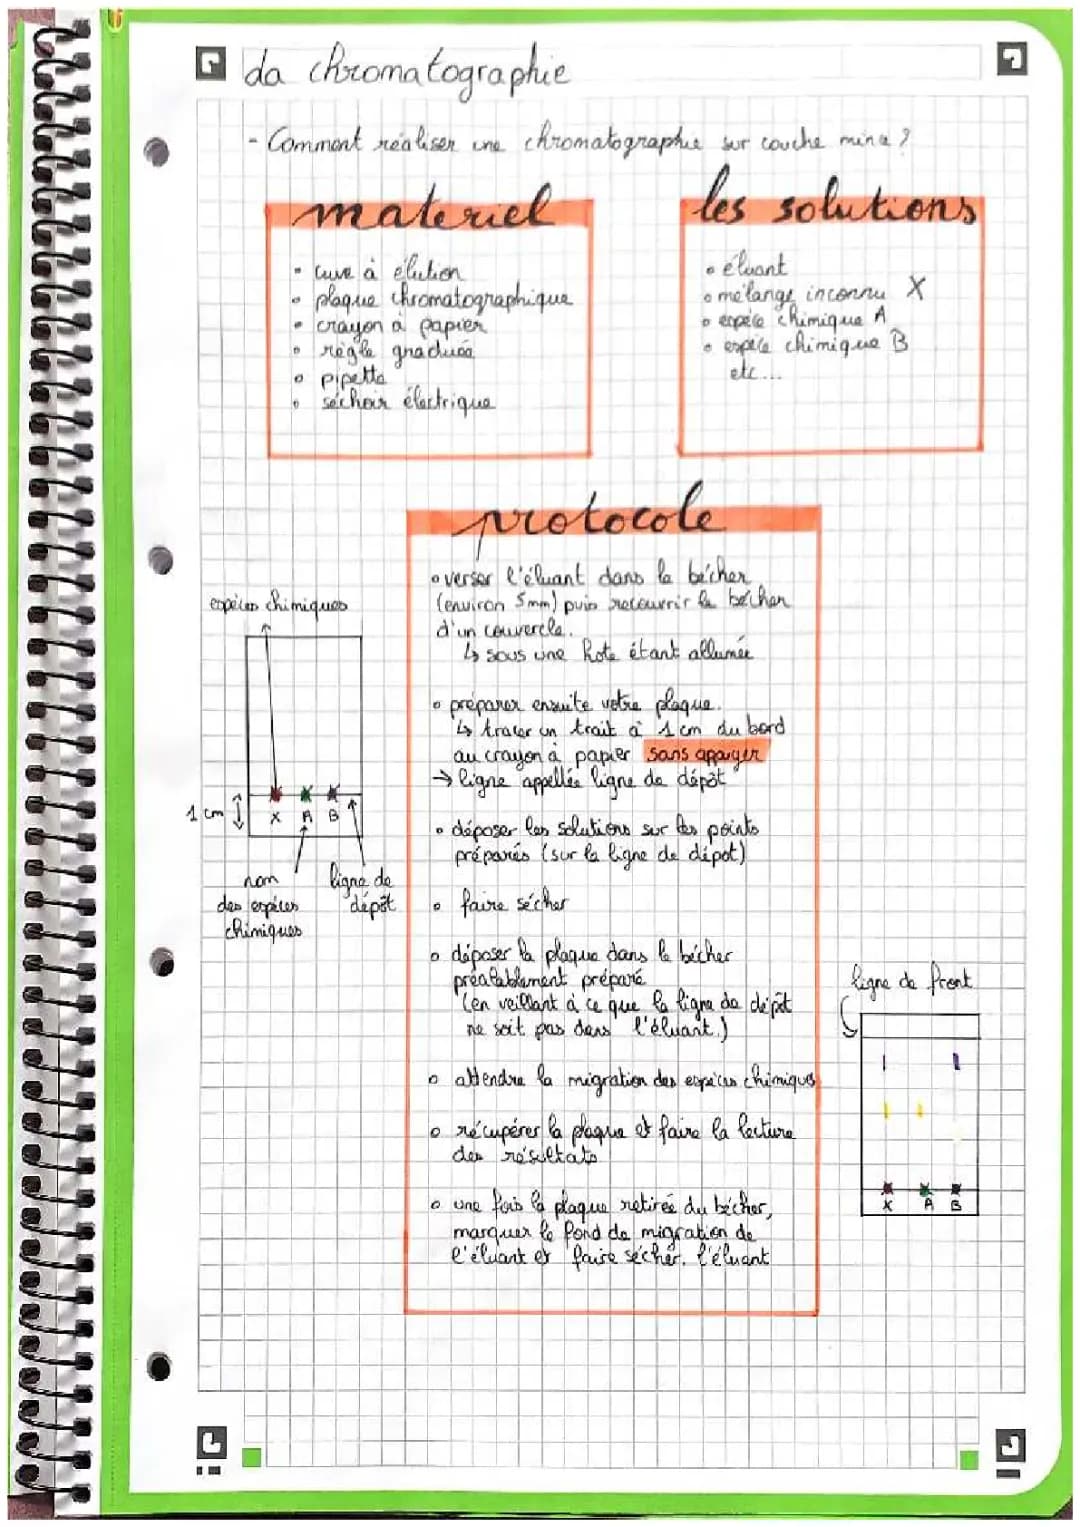 da chromatographie
- Comment réaliser une chromatographie sur couche mince ?
materiel
• cuve à élution
• plaque chromatographique
• crayon à papier
• règle graduée
• pipette
• séchoir électrique
les solutions
• éluant
• mélange inconnu X
• espèce chimique A
• espèce chimique B
etc...
protocole
• verser l'éluant dans le bécher
(environ 5mm) puis recouvrir le bécher
d'un couvercle.
↳ sous une hote étant allumée
• préparer ensuite votre plaque.
↳ tracer un trait à 1 cm du bord
au crayon à papier sans appuyer
→ ligne appellée ligne de dépôt
• déposer les solutions sur les points
préparés (sur la ligne de dépot)
• faire sécher
• déposer la plaque dans le bécher
préalablement préparé
(en veillant à ce que la ligne de dépôt
ne soit pas dans l'éluant.)
• attendre la migration des espèces chimiques
• récupérer la plaque et faire la lecture
des résultats
• une fois la plaque retirée du bécher,
marquer le fond de migration de
l'éluant et faire sécher. l'éluant
espèces chimiques
1 cm
X A B
nom
des espèces
chimiques
ligne de
dépôt
ligne de front
X A B